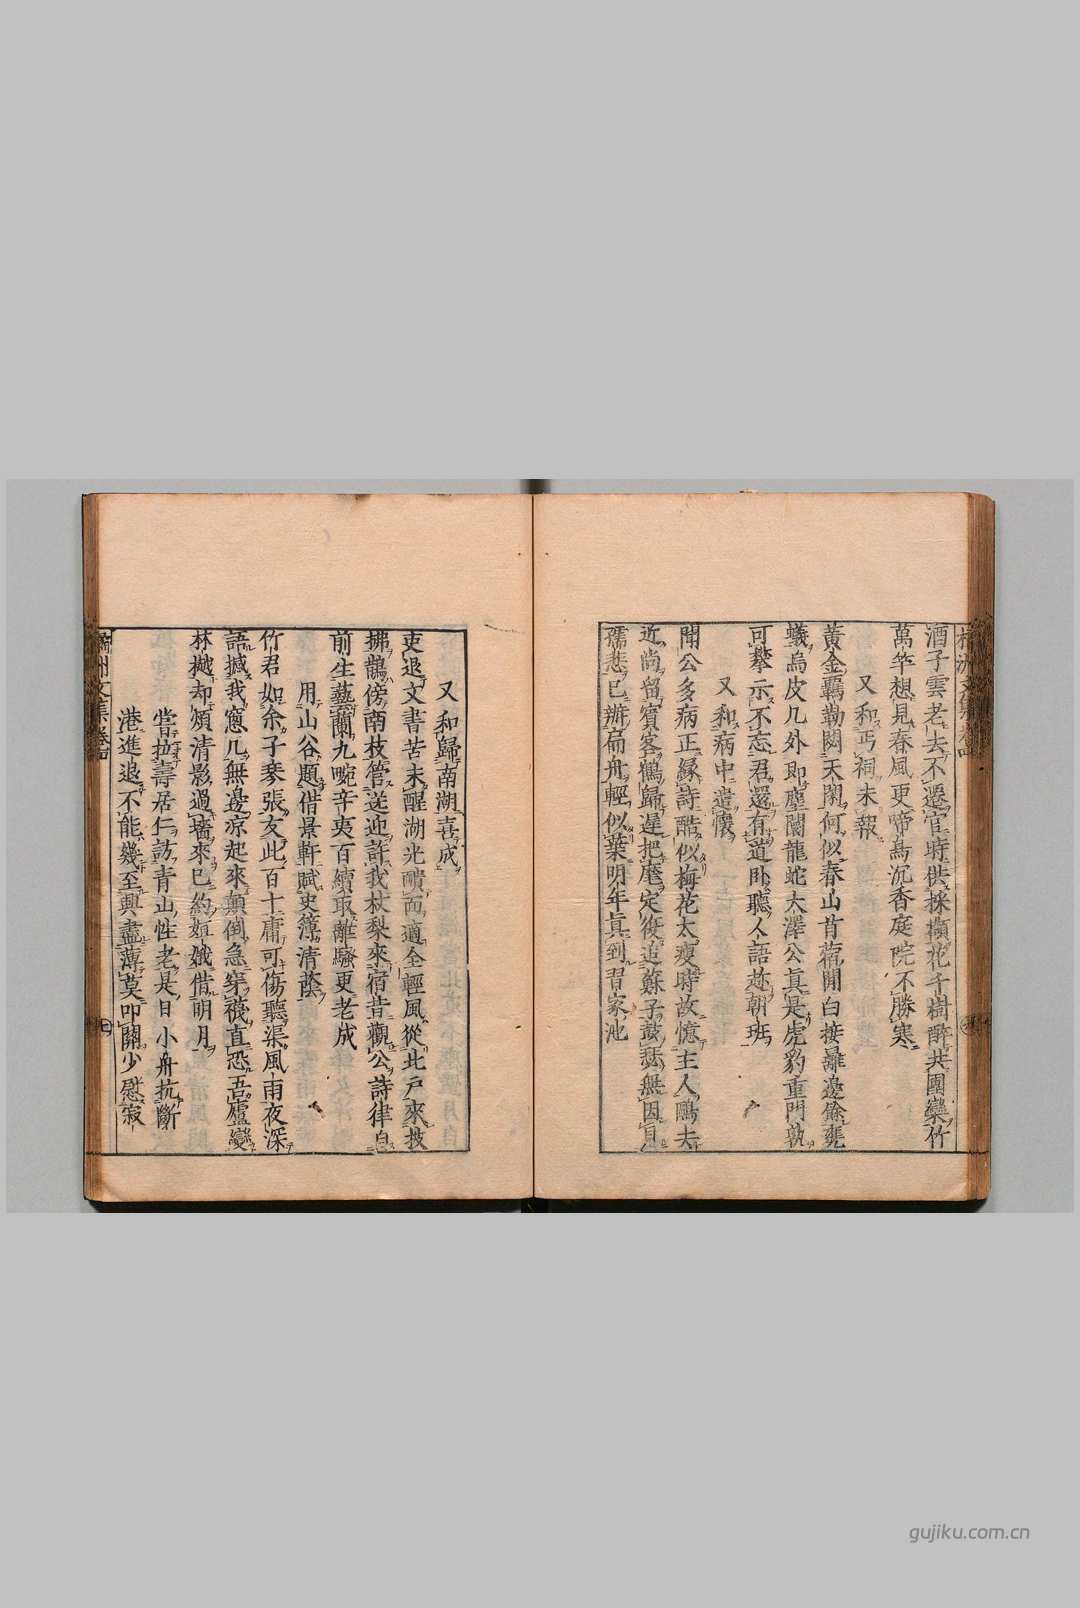 酒子雲老去不遷官時供採擷花千樹醉共團欒竹
萬竿想見春風更啼鳥沉香庭院不勝寒
又和丐祠未報
黃金羈勒閟天閑何似春山苜蓿閒白接䍦邊餘甕
蟻烏皮几外即塵闤龍蛇大澤公眞是虎豹重門孰
可攀示不忘君還有道臥聽人語趁朝班
又和病中遣懷
閒公多病正緣詩酷似梅花太瘦時故憶主人鷗去
近尚留賓客鶴歸遲把麾定復追蘇子鼓瑟無因
孺悲已辦扁舟輕似葉明年眞到習家池
又和歸南湖喜成
吏退文書苦未醒湖光頮面適全輕風從北戶來披
拂鵲傍南枝管送迎許我杖藜來宿昔觀公詩律自
前生藝蘭九畹辛夷百續取離騷更老成
用山谷題借景軒賦史簿清蔭
竹君如余子琴張友此百十庸可傷聽渠風雨夜深
語撼我窻几無邊凉起來顛倒急穿襪直恐吾廬變
林樾却煩清影過墻來已約姮娥借明月
嘗拉壽居仁訪青山性老是日小舟抗斷
港進退不能幾至興盡薄莫叩關少慰寂
橘洲文集卷四
七
gujiku.com.cn